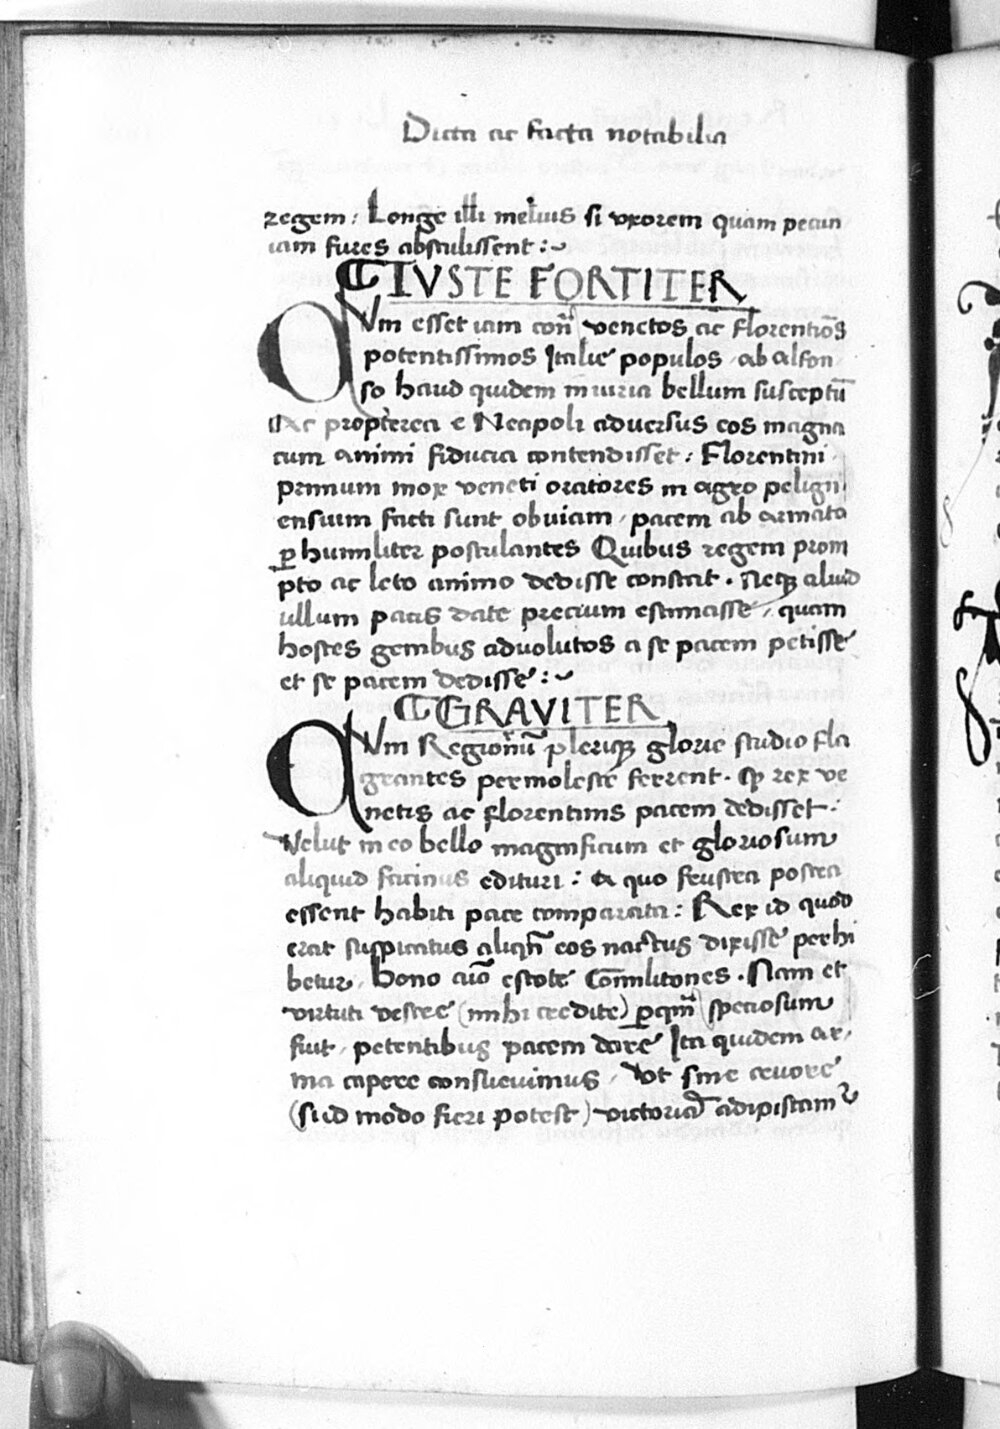 Dicta ac facta notabilia
regem: Longe illi meliuis si vxorem quam pecun
iam fures abstulissent:~
IVSTE FORTITER
QVm esset iam con̄ venetos ac florentiōs
potentissimos Italie populos ab alfon
so haud quidem iniuria bellum susceptū
Ac propterea e Neapoli aduersus eos magna
cum animi fiducia contendisset: Florentini
primum mox veneti oratores in agro peligni
ensium facti sunt obuiam, pacem ab armato
ꝑ humiliter postulantes Quibus regem prom
pto ac leto animo dedisse constat. Neqꝫ aliud
ullum pacis date precium estimasse, quam
hostes genibus aduolutos a se pacem petisse
et se pacem dedisse:~
GRAVITER
QVm Regionū pleriqꝫ glorie studio fla
grantes permoleste ferrent. ꝙ rex ve
netis ac florentinis pacem dedisset:
Velut in eo bello magnificum et gloriosum
aliquid facinus edituri: a quo frustra postea
essent habiti pace comparata: Rex id quod
erat suspicatus aliqn̄ eos nactus dixisse perhi
betur, bono aīo estote Com̄ilitones. Nam et
virtuti vestre (mihi credite) ꝑqm̄ speciosum
fiut, petentibus pacem dare Ita quidem ar,
ma capere consueuimus, Vt sine cruore
(si id modo fieri potest) victoriā adipiscam̄